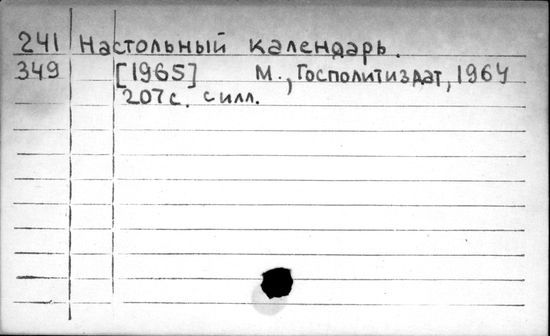 241 Настольный календарь.
349 [1965] М., Госполитиздат, 1964
207 с. с илл.